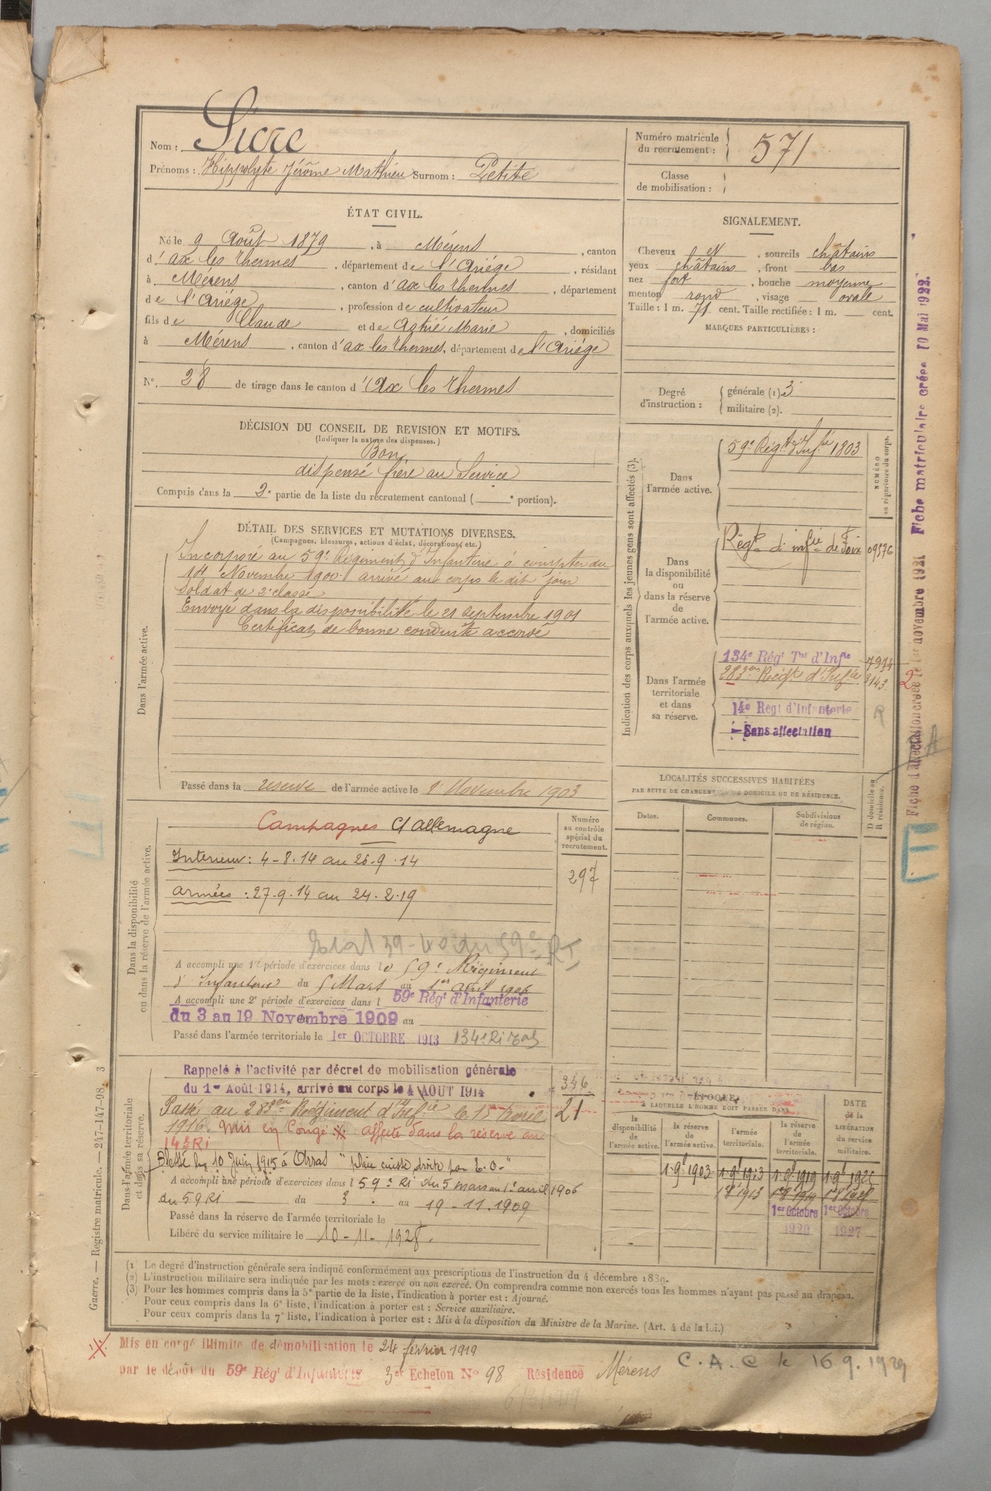 Nom : Sicre
Prénoms : Hippolyte Jérôme Mathieu Surnom : Petite
Numéro matricule du recrutement : 571
Classe de mobilisation :
ÉTAT CIVIL.
Né le 9 Août 1879, à Mérens, canton
d'ax les thermes, département de l'Ariége, résidant
à Mérens, canton d'ax les thermes, département
de l'Ariége, profession de cultivateur
fils de Claude et de Astrié Marie, domiciliés
à Mérens, canton d'ax les thermes, département de l'Ariége
N° 28 de tirage dans le canton d'Ax les thermes
SIGNALEMENT.
Cheveux et, sourcils châtains
yeux châtains, front bas
nez fort, bouche moyenne
menton rond, visage ovale
Taille : 1 m. 71 cent. Taille rectifiée : 1 m. cent.
MARQUES PARTICULIÈRES :
Degré d'instruction : générale (1) 3
militaire (2).
DÉCISION DU CONSEIL DE REVISION ET MOTIFS.
(Indiquer la nature des dispenses.)
Bon,
dispensé frère au Service
Compris dans la 2e partie de la liste du recrutement cantonal ( e portion).
DÉTAIL DES SERVICES ET MUTATIONS DIVERSES.
(Campagnes, blessures, actions d'éclat, décorations, etc.)
Dans l'armée active.
Incorporé au 59e Régiment d'Infanterie à compter du
1er Novembre 1900. arrivé au corps le dit jour
soldat de 2e classe
Envoyé dans la disponibilité le 21 septembre 1901
Certificat de bonne conduite accordé
Passé dans la reserve de l'armée active le 1 Novembre 1903
Indication des corps auxquels les jeunes gens sont affectés (3).
NUMÉRO au répertoire du corps.
Dans l'armée active.
59e Régt d'Inf.ie 1803
Dans la disponibilité ou dans la réserve de l'armée active.
Régt d'infie de Foix 09576
Dans l'armée territoriale et dans sa réserve.
134e Régt Tal d'Infie 7914
283eme Régt d'Infie 3143
14e Régt d'Infanterie
Sans affectation
Fiche d'affectation créée le 1er novembre 1921 Fiche matriculaire créée 10 Mai 1922.
LOCALITÉS SUCCESSIVES HABITÉES
PAR SUITE DE CHANGEMENT DE DOMICILE OU DE RÉSIDENCE.
Dates. Communes. Subdivisions de région. D domicile ou R résidence.
Dans la disponibilité ou dans la réserve de l'armée active.
Numéro au contrôle spécial du recrutement.
297
Campagnes C/ allemagne
Interieur : 4-8-14 au 26-9-14
armées : 27.9.14 au 24.2.19
A accompli une 1re période d'exercices dans le 59e Régiment
d'Infanterie du 5 Mars au 1er avril 1906
A accompli une 2e période d'exercices dans l 59e Rég' d'Infanterie
du 3 au 19 Novembre 1909 au
Passé dans l'armée territoriale le 1er OCTOBRE 1913 134e Ri Tal
Dans l'armée territoriale et dans sa réserve.
Rappelé à l'activité par décret de mobilisation générale
du 1er Août 1914, arrivé au corps le 4 AOUT 1914
346
21
Passé au 283eme Régiment d'Infie le 15 Avril
1916. Mis en congé affecté dans la reserve au
143 Ri
Blessé le 10 Juin 1915 à Arras
A accompli une période d'exercices dans l 59e Ri du 5 mars au 1er avril 1906
du 59 Ri du 3 au 19-11-1909
Passé dans la réserve de l'armée territoriale le
Libéré du service militaire le 10-11-1928.
ÉPOQUE
À LAQUELLE L'HOMME DOIT PASSER DANS
la disponibilité de l'armée active. la réserve de l'armée active. l'armée territoriale. la réserve de l'armée territoriale.
DATE de la LIBÉRATION du service militaire.
1er Octobre 1920 1er Octobre 1927
(1) Le degré d'instruction générale sera indiqué conformément aux prescriptions de l'instruction du 4 décembre 1889.
(2) L'instruction militaire sera indiquée par les mots : exercé ou non exercé. On comprendra comme non exercés tous les hommes n'ayant pas passé au drapeau.
(3) Pour les hommes compris dans la 5e partie de la liste, l'indication à porter est : Ajourné.
Pour ceux compris dans la 6e liste, l'indication à porter est : Service auxiliaire.
Pour ceux compris dans la 7e liste, l'indication à porter est : Mis à la disposition du Ministre de la Marine. (Art. 4 de la loi.)
Guerre. — Registre matricule. — 247-147-98. 3
Mis en congé illimité de démobilisation le 24 février 1919
par le dépôt du 59e Rég' d'Infanterie 3e Echelon N° 98 Résidence Mérens
C.A.C le 16.9.1929